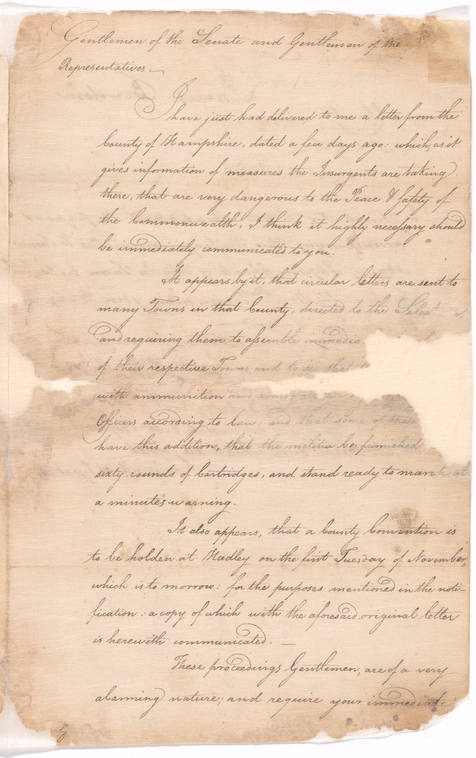 Gentlemen of the Senate and Gentlemen of the
Representatives
I
have just had delivered to me a letter from the
County of Hampshire, dated a few days ago: which, as it
gives information of measures the Insurgents are taking
there, that are very dangerous to the Peace & Safety of
the Commonwealth, I think it highly necessary should
be immediately communicated to you.
It appears by it, that circular letters are sent to
many Towns in that County, directed to the Select
and requiring them to assemble immedia
of their respective Towns and to see that
with ammunition and
Officers according to law, and that some of these
have this addition, that the militia be furnished
sixty rounds of Cartridges, and stand ready to march at
a minute's warning.
It also appears, that a County Convention is
to be holden at Hadley on the first Tuesday of November,
which is to morrow: for the purposes mentioned in the noti-
fication: a copy of which with the aforesaid original letter
is herewith communicated. —
These proceedings Gentlemen, are of a very
alarming nature; and require your immediat